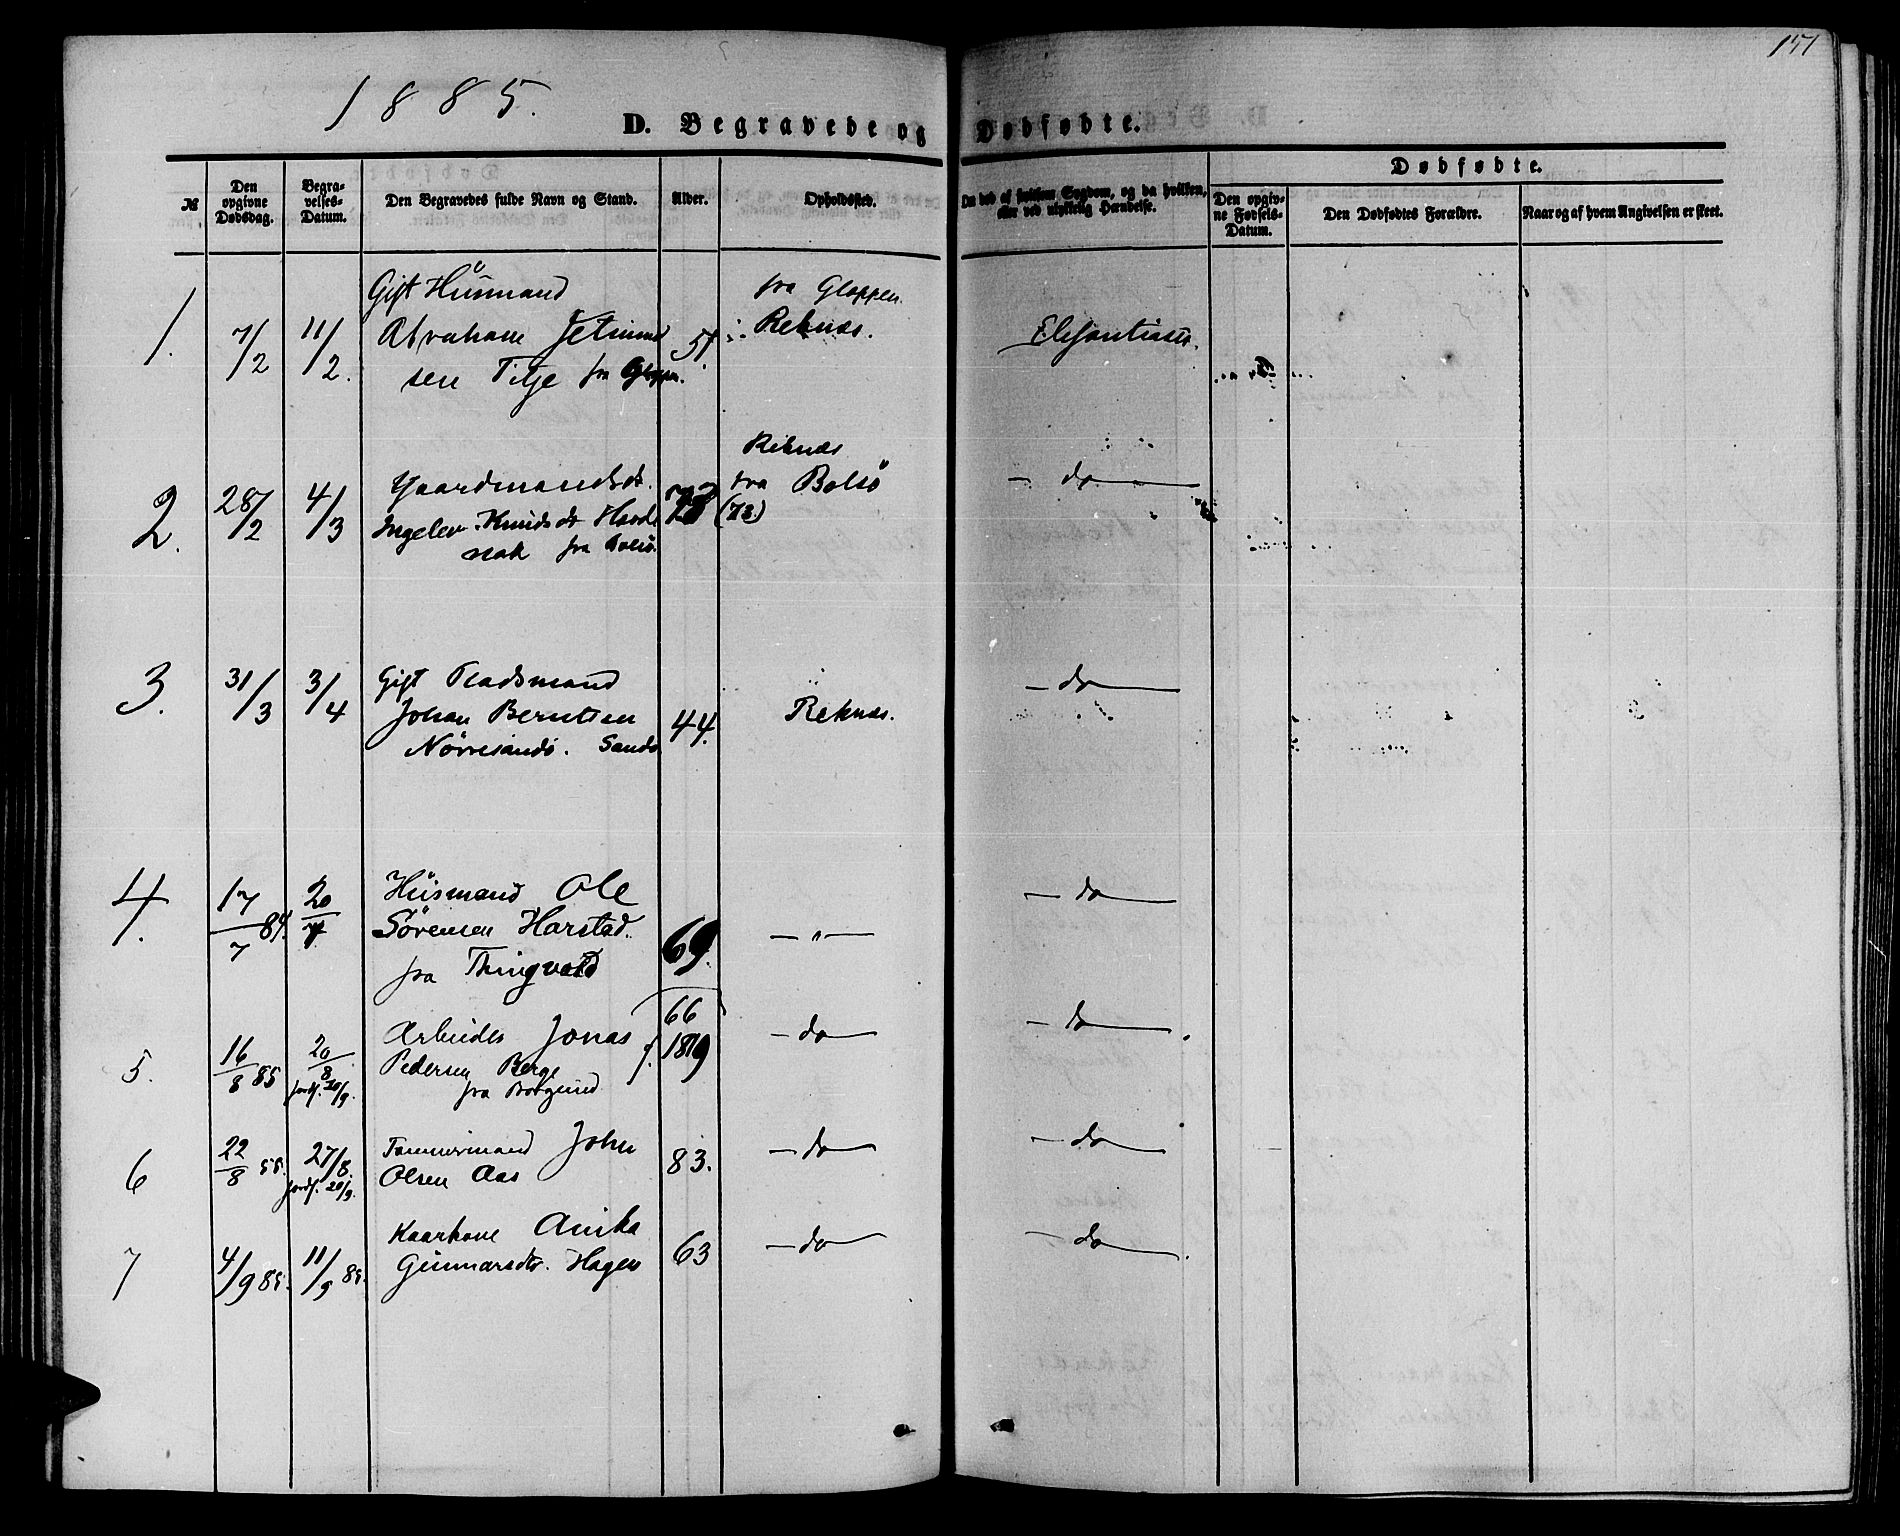 151
1885.
D. Begravede og Dødfødte.
Dødfødte.
№
Den opgivne Dødsdag.
Begravelses-Datum.
Den Begravedes fulde Navn og Stand.
Alder.
Opholdssted.
Om død af smitsom Sygdom, og da hvilken, eller ved ulykkelig Hændelse.
Den opgivne Fødsels-Datum.
Den Dødfødtes Forældre.
Naar og af hvem Angivelsen er skeet.
Gift Hüsmand fra Gloppen.
1. 7/2 11/2. Abraham 51 Reknæs. Elefantiasis.
sen fra Gloppen.
Reknæs
2. 28/2 4/3 Gaardmandsdt. fra Bolsö — do —
Ingelev Knudsdt (73.)
fra Bolsö.
3. 31/3 3/4 Gift Pladsmand — do —
Johan Berntsen 44. Reknæs.
Nörresandö. Sandö
4. 17/7 84. 20/7 Hüsmand Ole — do —
Sörensen Harstad. 69. — " —
fra Thingvold
5. 16/8 85 20/8 Arbeider Jonas 66 — do — — do —
jordf. 20/9. Pedersen Berge f. 1819
fra Borgund
6 22/8 85. 27/8. Tømmermand John 83. — do — — do —
jordf. 20/9. Olsen Aas
7 4/9 85. 11/9 85. Kaarkone Anika 63 — do — — do —.
Günnarsdtr. Hagen